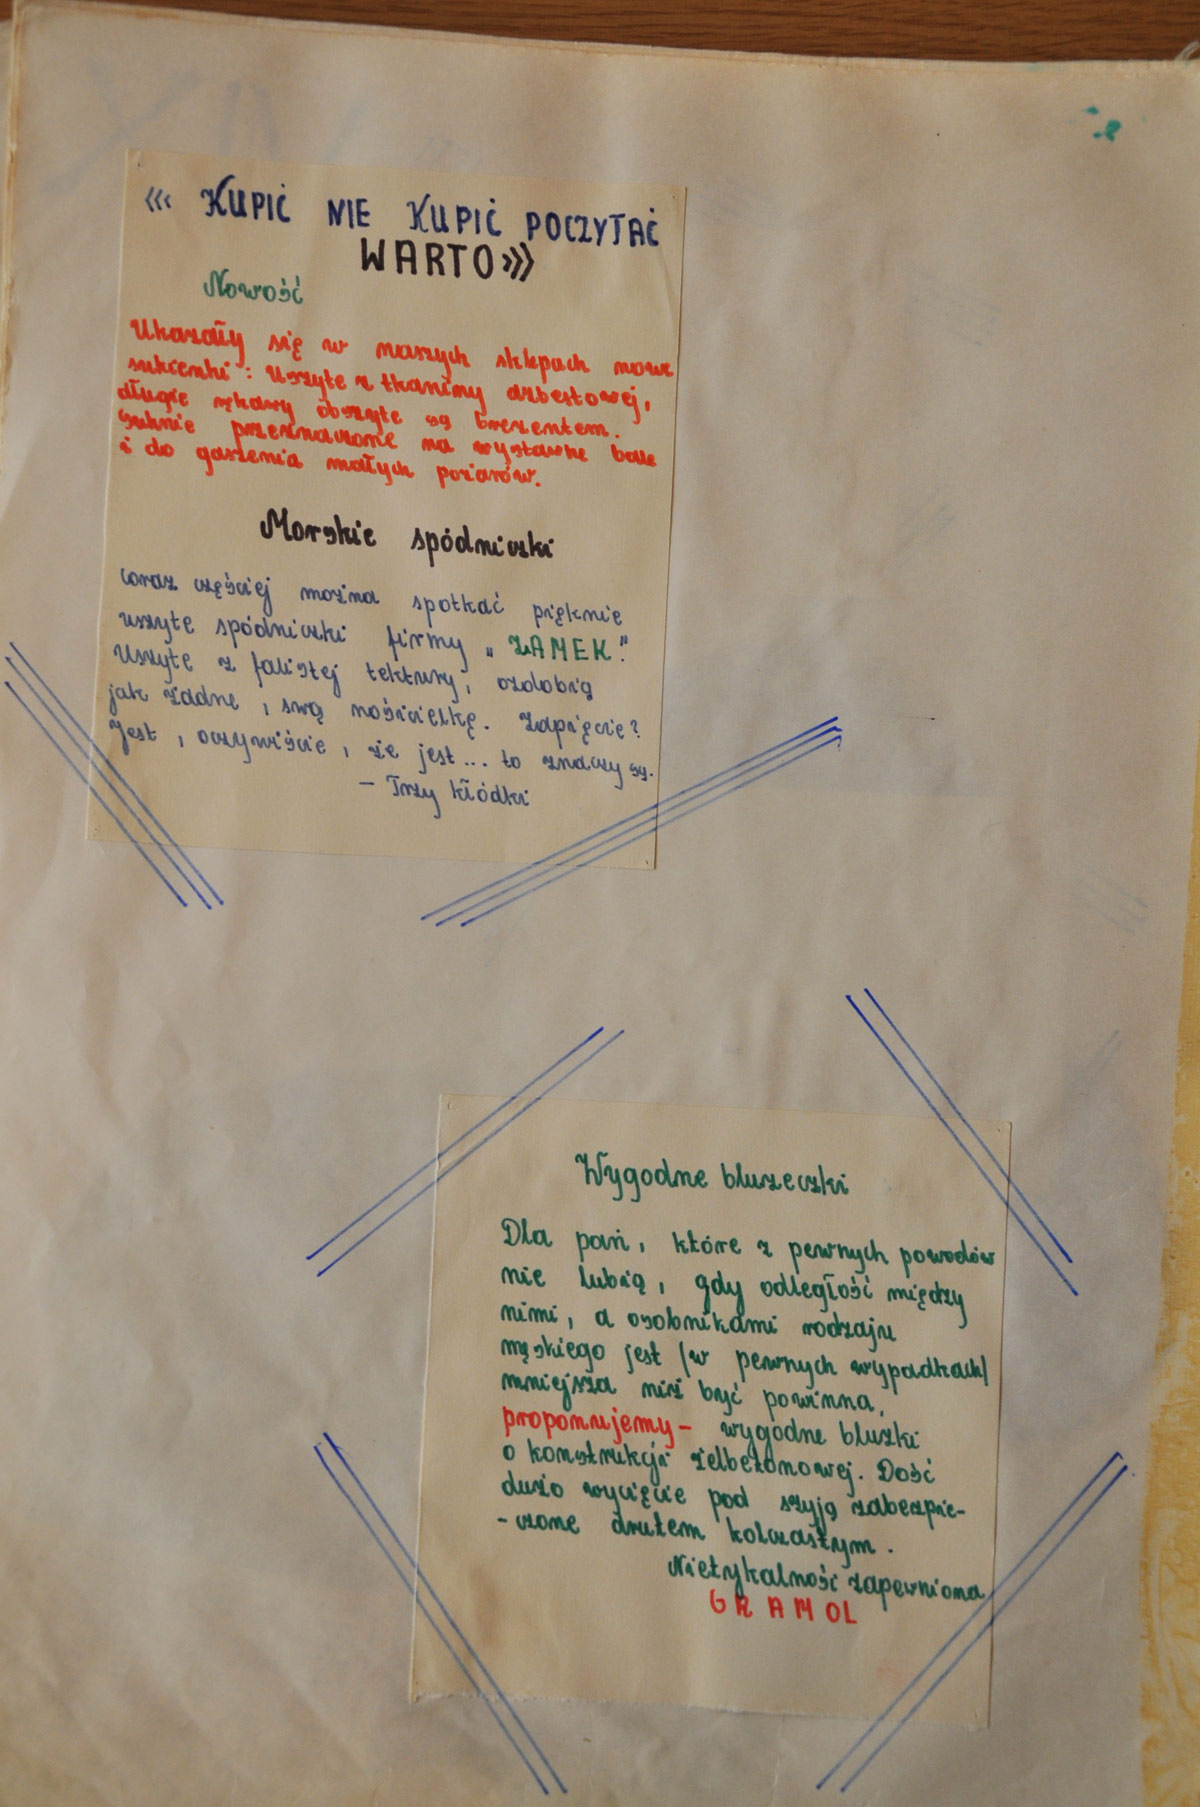 ««« KUPIĆ NIE KUPIĆ POCZYTAĆ
WARTO»»»
Nowość
Ukazały się w naszych sklepach nowe
sukienki: Uszyte z tkaniny azbestowej,
długie rękawy obszyte są brezentem.
suknie przeznaczone na wystawne bale
i do gaszenia małych pożarów.
Morskie spódniczki
coraz częściej można spotkać pięknie
uszyte spódniczki firmy „ZAMEK".
Uszyte z falistej tektury, ozdobią
jak żadne, swą nosicielkę. Zapięcie?
Jest, oczywiście, że jest... to znaczy są.
– Trzy kłódki
Wygodne bluzeczki
Dla pań, które z pewnych powodów
nie lubią, gdy odległość między
nimi, a osobnikami rodzaju
męskiego jest /w pewnych wypadkach/
mniejsza niż być powinna,
proponujemy – wygodne bluzki
o konstrukcji żelbetonowej. Dość
dużo wycięcie pod szyją zabezpie-
-czone drutem kolczastym.
Nietykalność zapewniona
GRAMOL